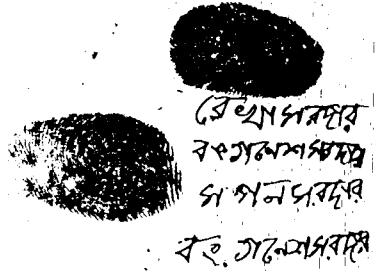 রেখা সরদার
বঃ গনেশ সরদার
স পন সরদার
বং গনেশ সরদার